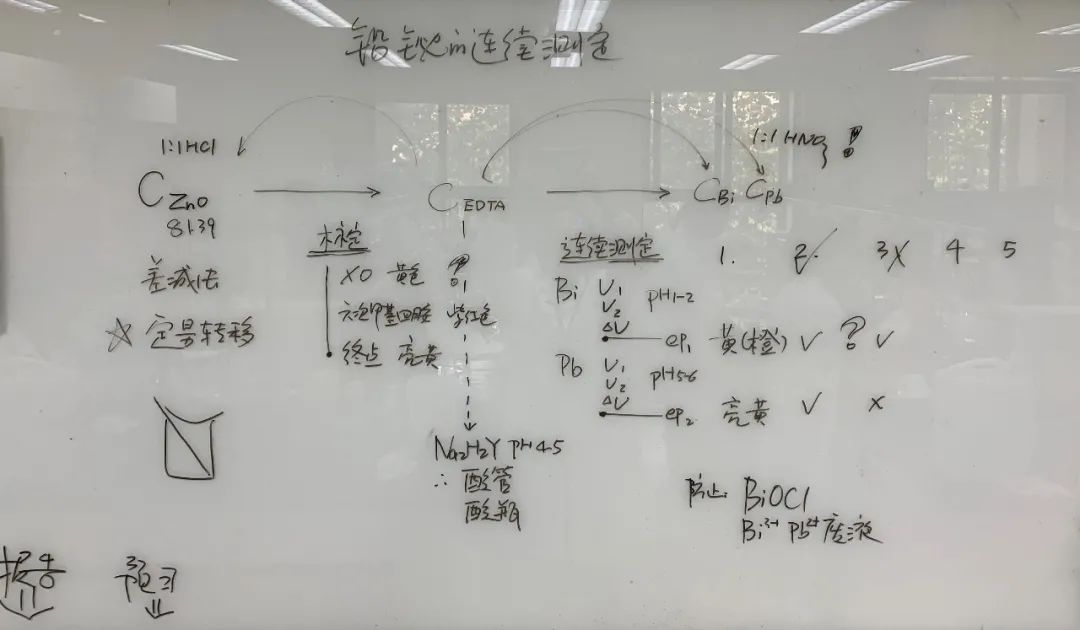 铅铋的连续测定
1:1 HCl
1:1 HNO3 !
C ZnO
81.39
C EDTA
C Bi C Pb
差减法
☆ 定量转移
标定
XO 黄色 ?
六次甲基四胺 紫红色
终点 亮黄
Na2H2Y pH 4-5
∴ 酸管
酸瓶
连续测定 1. 2. ✓ 3 X 4 5
Bi V1 pH1-2
V2
ΔV ep1 黄(橙) ✓ ? ✓
Pb V1 pH5-6
V2
ΔV ep2 亮黄 ✓ ×
防止: BiOCl
Bi3+ Pb2+ 废液
报告
预习